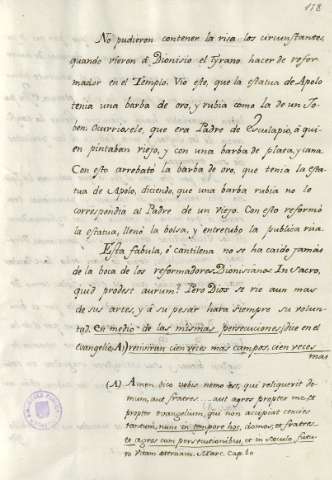 178
No pudieron contener la risa los circunstantes,
quando vieron á Dionisio el Tyrano hacer de refor-
mador en el Templo. Vio este, que la estatua de Apolo
tenia una barba de oro, y rubia como la de un Jo-
ben. Ocurriosele, que era Padre de Esculapio, á qui-
en pintaban viejo, y con una barba de plata, y cana
Con esto arrebató la barba de oro, que tenia la esta-
tua de Apolo, diciendo, que una barba rubia no le
correspondia al Padre de un viejo. Con esto reformó
la estatua, llenó la bolsa, y entretubo la publica risa
Esta fabula, ó cantilena no se ha caido jamás
de la boca de los reformadores Dionisianos In sacro,
quid prodest aurum? Pero Dios se rie aun mas
de sus artes, y á su pesar hara siempre su volun-
tad. En medio de las mismas persecuciones (dice en el
evangelio A) recivirán cien veces mas campos, cien veces
mas
(A) Amen dico vobis: nemo est, qui reliquerit do-
mum, aut fratres ... aut agros propter me et
propter evangelium, qui non accipiat centies
tantum, nunc in tempore hoc, domos, et fratres..
et agros cum persecutionibus, et in seculo futu-
ro vitam aeternam. Marc. Cap. 10